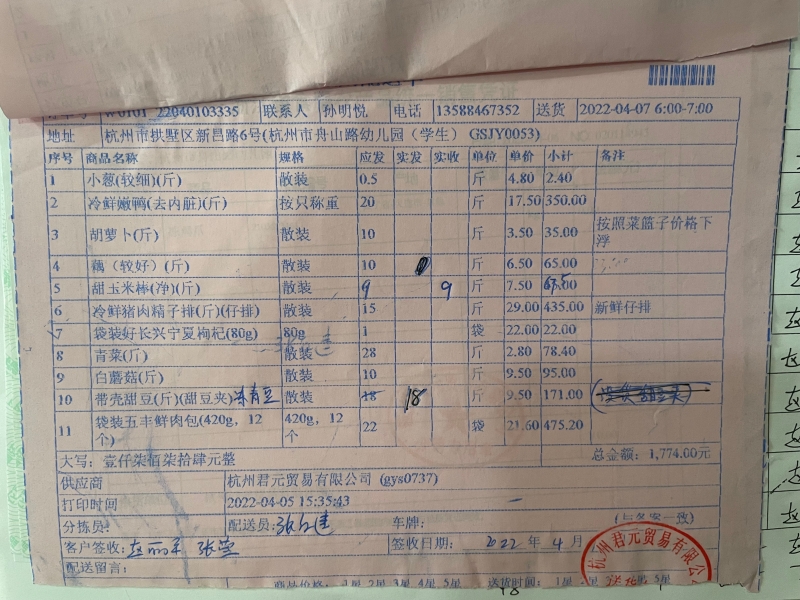 W0101_22040103335 联系人 孙明悦 电话 13588467352 送货 2022-04-07 6:00-7:00
地址 杭州市拱墅区新昌路6号(杭州市舟山路幼儿园（学生） GSJY0053)
序号 商品名称 规格 应发 实发 实收 单位 单价 小计 备注
1 小葱(较细)(斤) 散装 0.5 斤 4.80 2.40
2 冷鲜嫩鸭(去内脏)(斤) 按只称重 20 斤 17.50 350.00
3 胡萝卜(斤) 散装 10 斤 3.50 35.00 按照菜篮子价格下浮
4 藕（较好）(斤) 散装 10 斤 6.50 65.00
5 甜玉米棒(净)(斤) 散装 9 9 斤 7.50
6 冷鲜猪肉精子排(斤)(仔排) 散装 15 斤 29.00 435.00 新鲜仔排
7 袋装好长兴宁夏枸杞(80g) 80g 1 袋 22.00 22.00
8 青菜(斤) 散装 28 斤 2.80 78.40
9 白蘑菇(斤) 散装 10 斤 9.50 95.00
10 带壳甜豆(斤)(甜豆夹) 散装 18 18 斤 9.50 171.00
11 袋装五丰鲜肉包(420g，12个) 420g，12个 22 袋 21.60 475.20
大写：壹仟柒佰柒拾肆元整 总金额：1,774.00元
供应商 杭州君元贸易有限公司 (gys0737)
打印时间 2022-04-05 15:35:43
分拣员: 配送员: 车牌:
客户签收: 签收日期: 2022 年 4 月
配送留言:
杭州君元贸易有限公